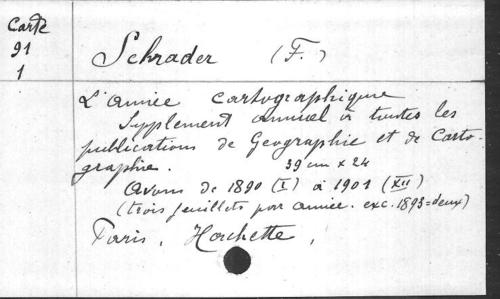 Carte
91
1
Schrader (F.)
L'année cartographique
Supplément annuel à toutes les
publications de Géographie et de Carto-
graphie. 39 cm x 24
Avons de 1890 (I) à 1901 (XII)
(trois feuillets par année. exc. 1893=deux)
Paris, Hachette,